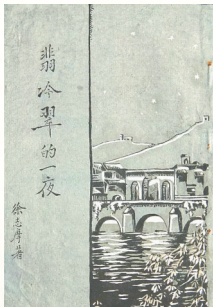 翡冷翠的一夜
徐志摩著